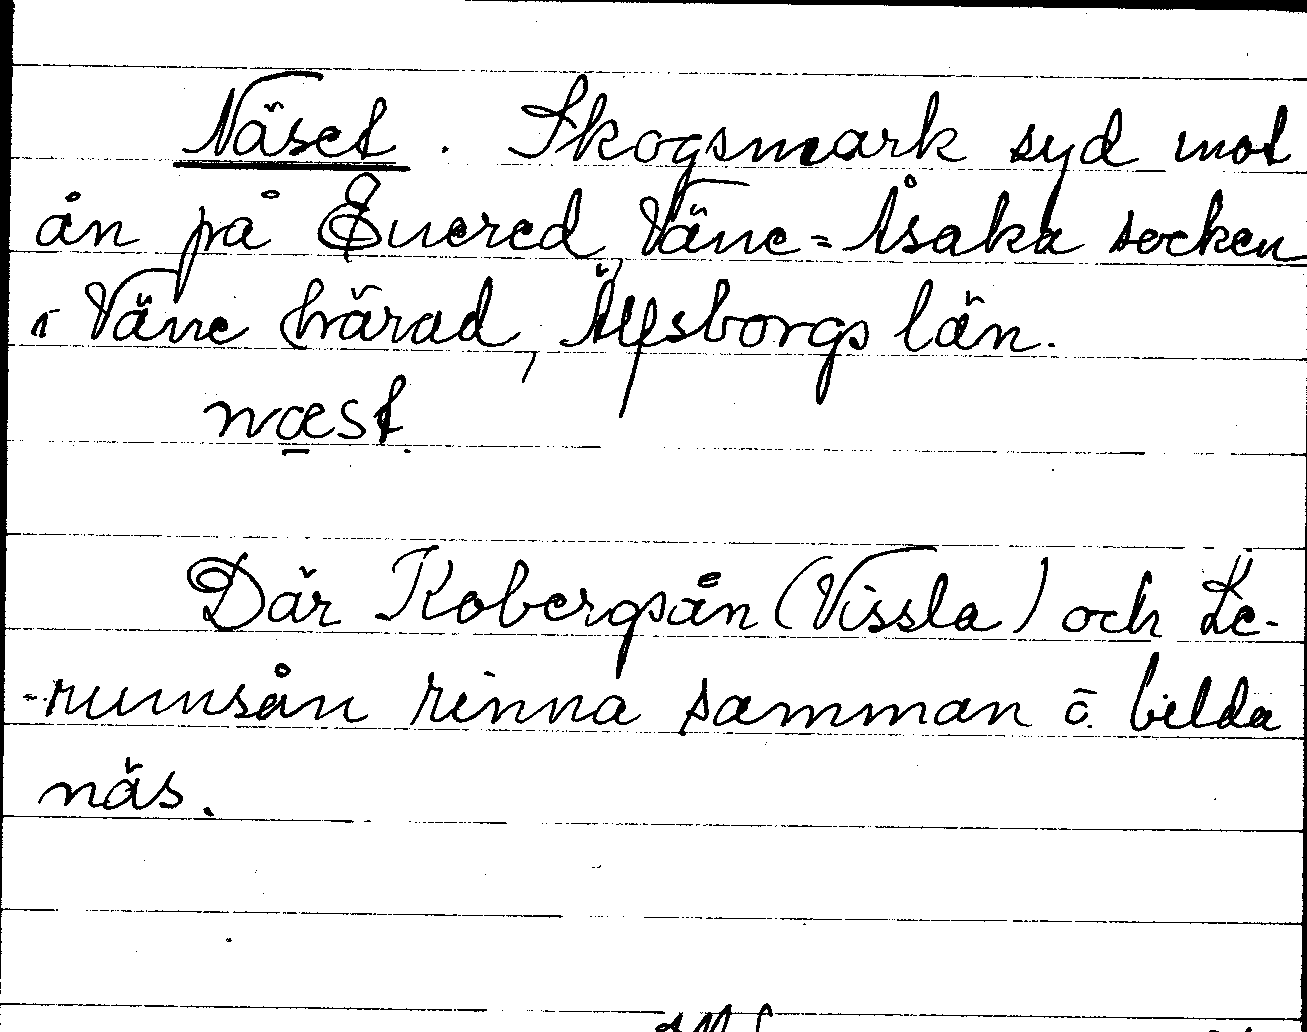 Näset. Skogsmark syd mot
ån på Euered, Väne=Åsaka socken
i Väne härad, Älfsborgs län.
næst.
Där Kobergsån (Vissla) och Le-
-rumsån rinna samman o. bilda
näs.